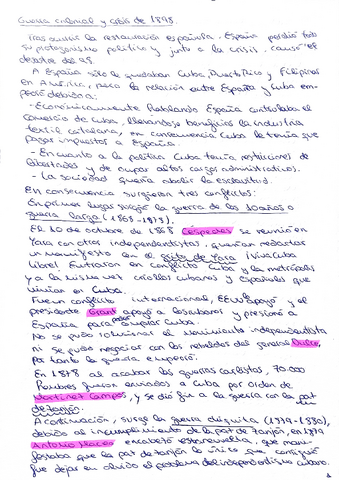 Guerra colonial y crisis de 1898.
Tras ocurrir la restauración española, España perdió todo
su protagonismo político y junto a la crisis, causó el
desastre del 98.
A España sólo le quedaban Cuba, Puerto Rico y Filipinas
en América, pero la relación entre España y Cuba em-
peoró debido a:
- Económicamente hablando España controlaba el
comercio de Cuba, llevándose beneficios la industria
textil catalana, en consecuencia Cuba le tenía que
pagar impuestos a España.
- En cuanto a la política Cuba tenía restricciones de
libertades y de ocupar altos cargos administrativos.
- La sociedad quería abolir la esclavitud.
En consecuencia surgieron tres conflictos:
En primer lugar surgió la guerra de los 10 años o
guerra larga (1868-1878).
El 10 de octubre de 1868 Céspedes se reunió en
Yara con otros independentistas, querían redactar
un manifiesto en el Grito de Yara ¡Viva Cuba
Libre! Entraron en conflicto Cuba y la metrópolis
y a la misma vez criollos cubanos y españoles que
vivían en Cuba.
Fue un conflicto internacional, EEUU apoyó y el
presidente Grant apoyó a los cubanos y presionó a
España para poder comprar Cuba.
No se pudo solucionar el movimiento independentista
ni se pudo negociar con los rebeldes del general Dulce,
por tanto la guerra empeoró.
En 1878 al acabar las guerras carlistas, 70.000
hombres fueron enviados a Cuba por orden de
Martínez Campos, y se dió fin a la guerra con la paz
de Zanjón.
A continuación, surge la guerra chiquita (1879-1880),
debido al incumplimiento de la paz de Zanjón, en 1879
Antonio Maceo encabezó esta revuelta, que mani-
festaba que la paz de Zanjón lo único que consiguió
fue dejar en olvido el problema del independentismo cubano.
1